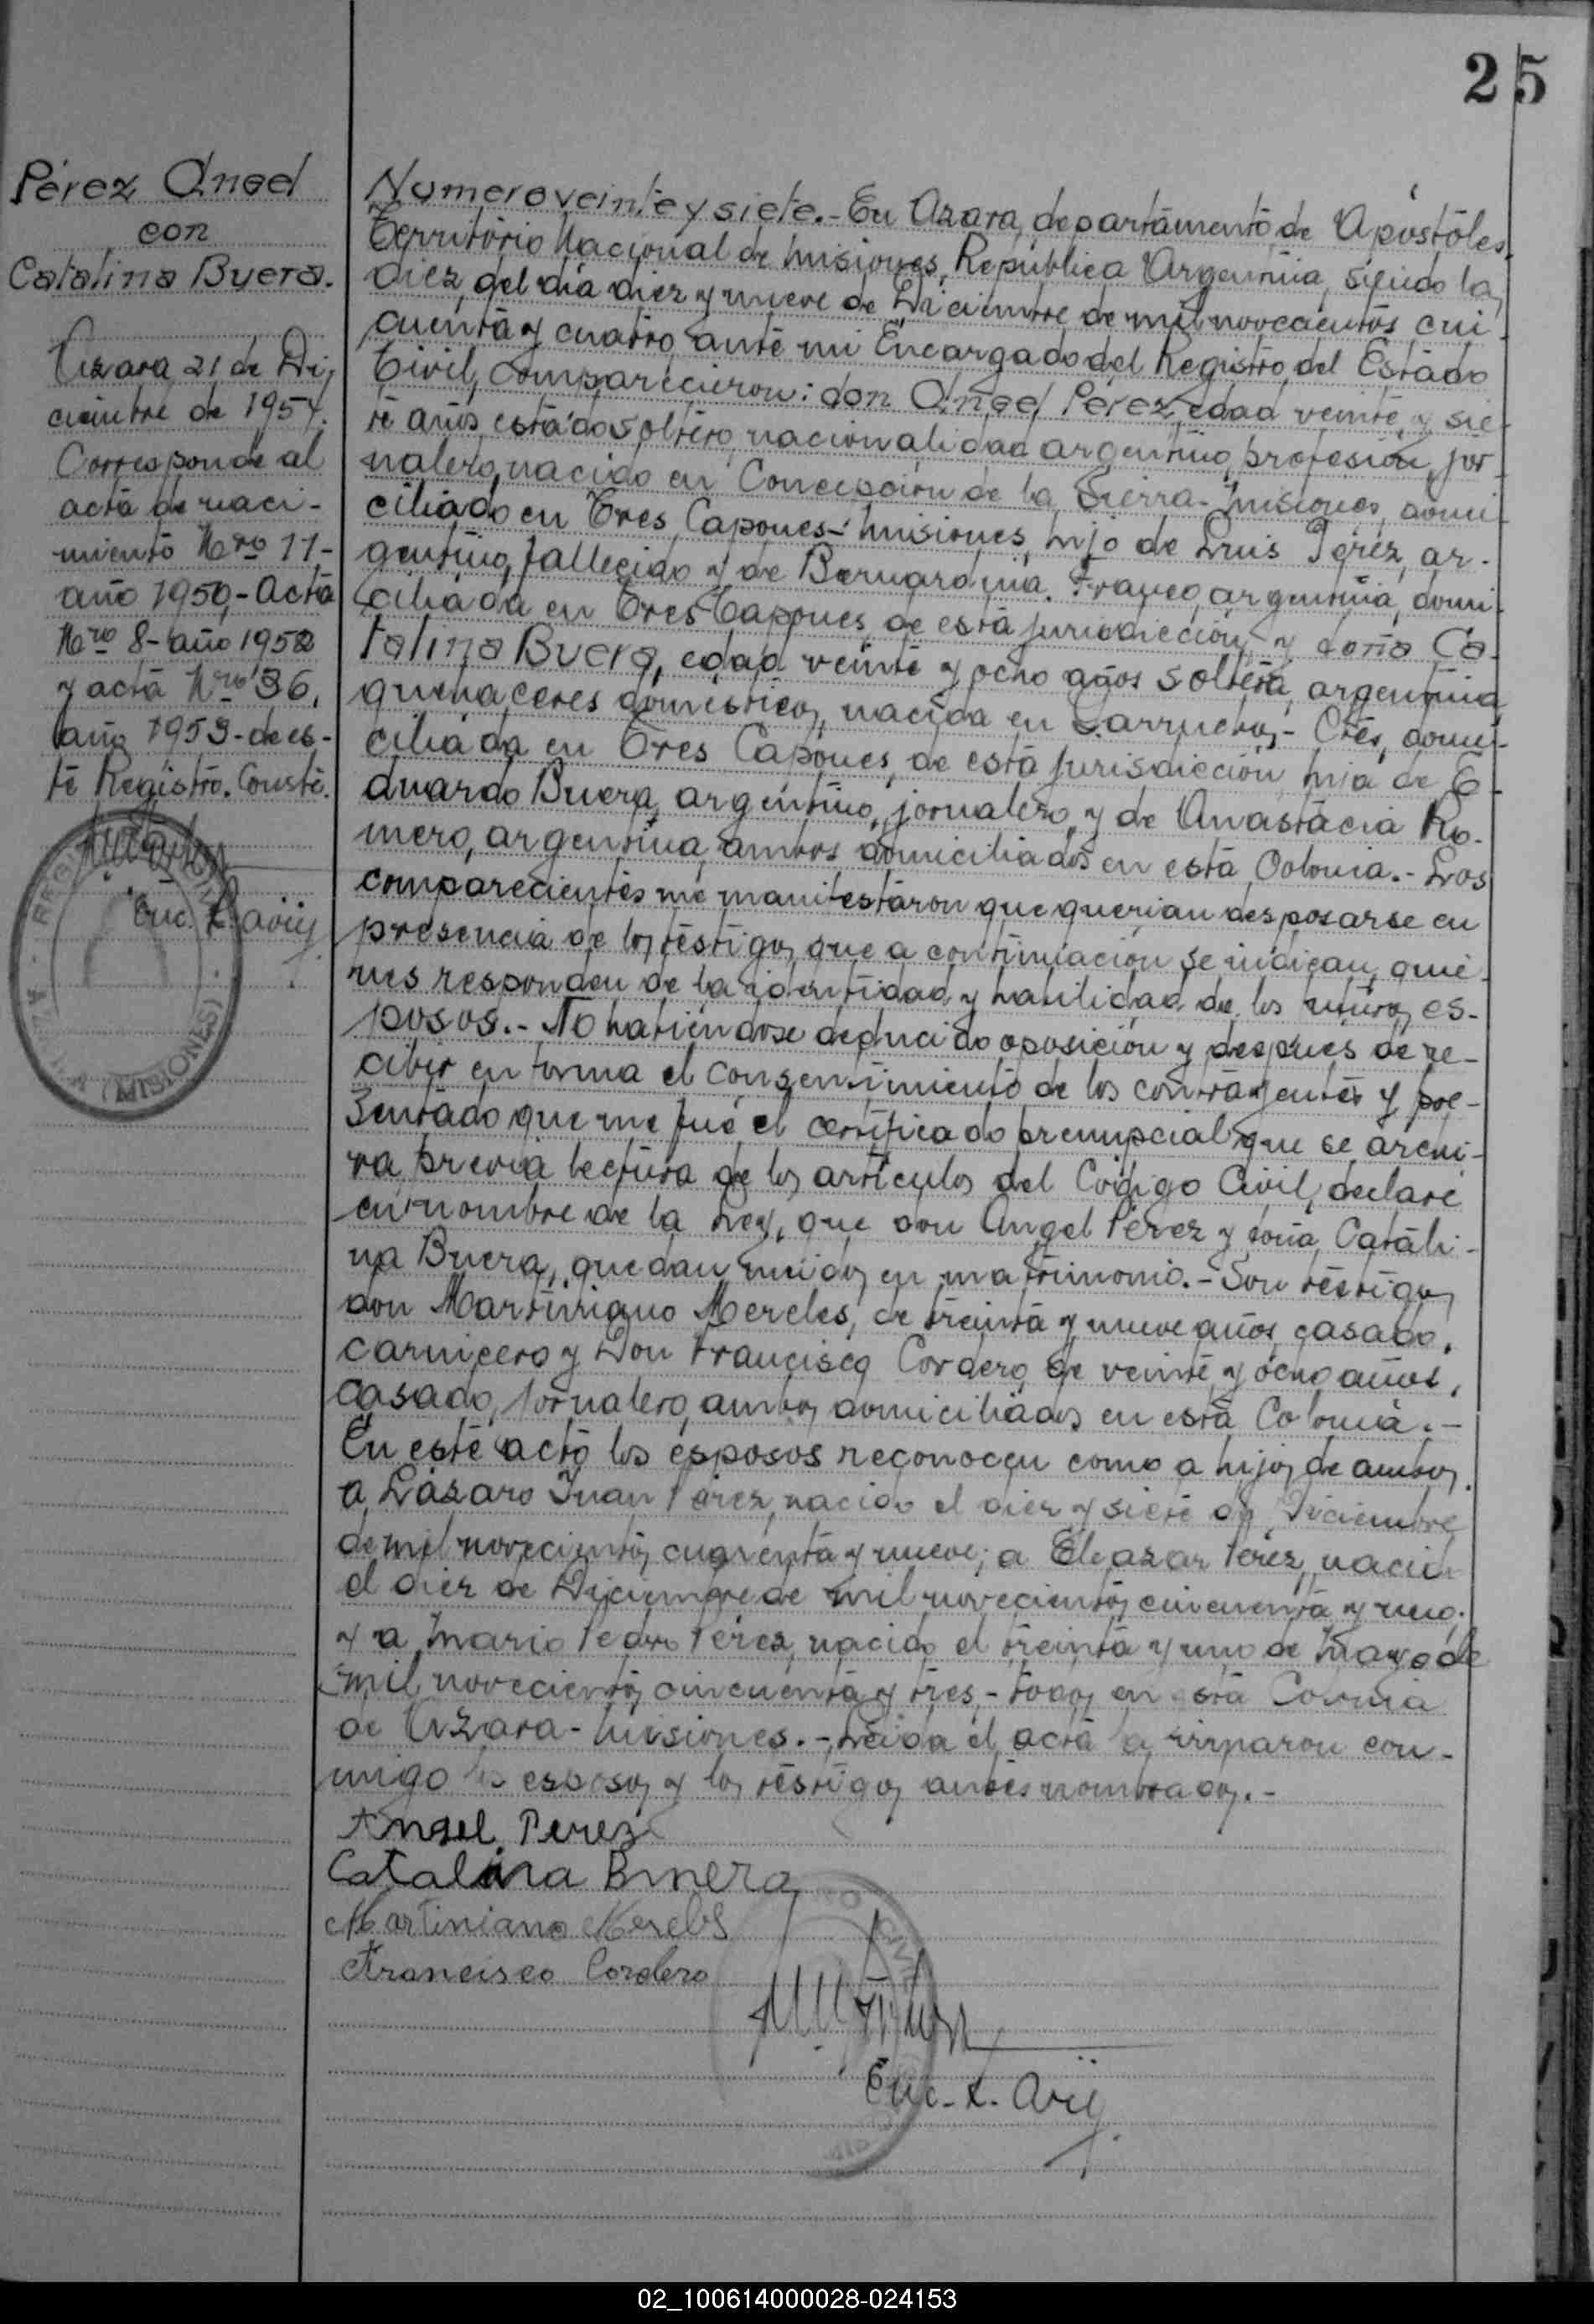 25
Pérez Angel
con
Catalina Buera.
Azara 21 de Di-
ciembre de 1954.
Corresponde al
acta de naci-
miento Nro 11-
año 1950,- Acta
Nro 8- año 1952
y acta Nro 36,
año 1953- de es-
te Registro. Conste.
Enc. R.
(MISIONES)
Numero veinte y siete.- En Azara, departamento de Apóstoles,
Territorio Nacional de Misiones, República Argentina, siendo las
diez, del día diez y nueve de Diciembre de mil novecientos cin-
cuenta y cuatro, ante mi Encargado del Registro del Estado
Civil, comparecieron: don Angel Pérez, edad veinte y sie-
te años, estado soltero, nacionalidad argentino, profesión, jor-
nalero, nacido en Concepción de la Sierra- Misiones, domi-
ciliado en Tres Capones- Misiones, hijo de Luis Pérez, ar-
gentino, fallecido y de Bernardina Franco, argentina, domi-
ciliada en Tres Capones, de esta jurisdicción, y doña Ca-
talina Buera, edad veinte y ocho años soltera, argentina
quehaceres domésticos, nacida en Garruchos,- Ctes, domi-
ciliada en Tres Capones, de esta jurisdicción, hija de E-
duardo Buera, argentino, jornalero, y de Anastacia Ro-
mero, argentina, ambos domiciliados en esta Colonia.- Los
comparecientes me manifestaron que querian desposarse en
presencia de los testigos que a continuación se indican, quie-
nes responden de la identidad y habilidad de los futuros es-
posos.- No habiéndose deducido oposición y después de re-
cibir en forma el consentimiento de los contrayentes y pre-
sentado que me fué el certificado prenupcial que se archi-
va, previa lectura de los artículos del Código Civil, declaré
en nombre de la Ley, que don Angel Pérez y doña Catali-
na Buera, quedan unidos en matrimonio.- Son testigos
don Martiniano Mereles, de treinta y nueve años, casado,
carnicero y Don Francisco Cordero, de veinte y ocho años,
casado, jornalero, ambos domiciliados en esta Colonia.-
En este acto los esposos reconocen como a hijos de ambos,
a Lázaro Juan Pérez, nacido el diez y siete de Diciembre
de mil novecientos cuarenta y nueve; a Eleazar Pérez, nacido
el diez de Diciembre de mil novecientos cincuenta y uno;
y a Mario Pedro Pérez, nacido el treinta y uno de Mayo de
mil novecientos cincuenta y tres,- todos en esta Colonia
de Azara- Misiones.- Leída el acta la firmaron con-
migo los esposos y los testigos antes nombrados.-
Angel Perez
Catalina Buera
Martiniano Mereles
Francisco Cordero
Enc. R.
02_100614000028-024153